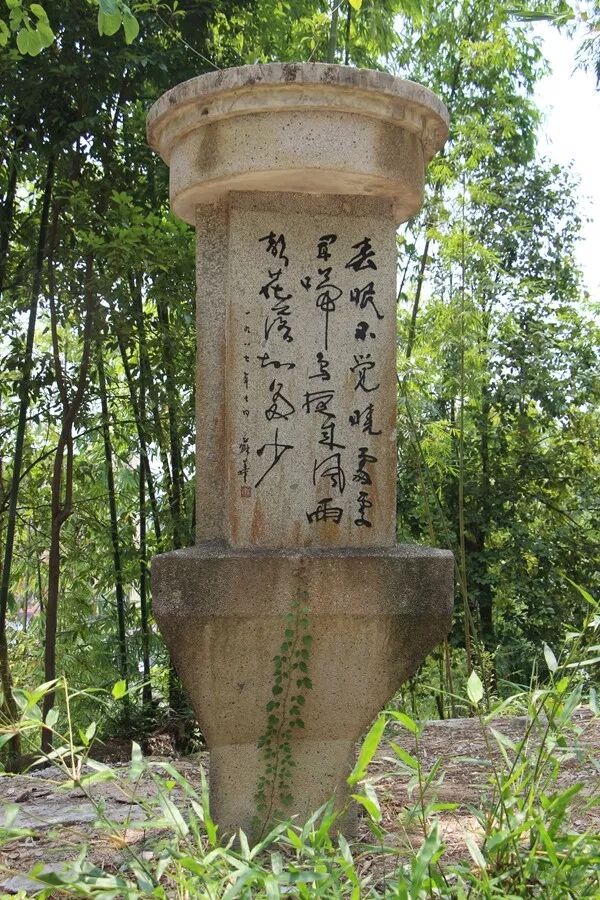 春眠不觉晓處處
闻啼鸟夜来风雨
声花落知多少
一九八七年十月